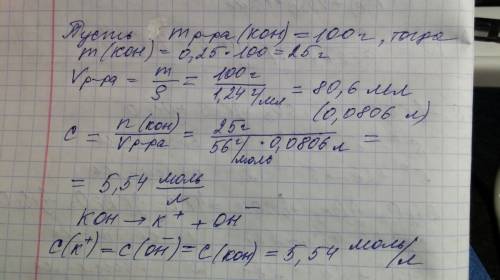 Пусть m р-ра (КОН) = 100г, тогда
m(КОН) = 0,25·100 = 25г
Vр-ра = m/ρ = 100г/1,24 г/мл = 80,6 мл
(0,0806 л)
C = n(КОН)/Vр-ра = 25г/56 г/моль · 0,0806 л =
= 5,54 моль/л
КОН → К⁺ + ОН⁻
C(К⁺) = C(ОН⁻) = C(КОН) = 5,54 моль/л